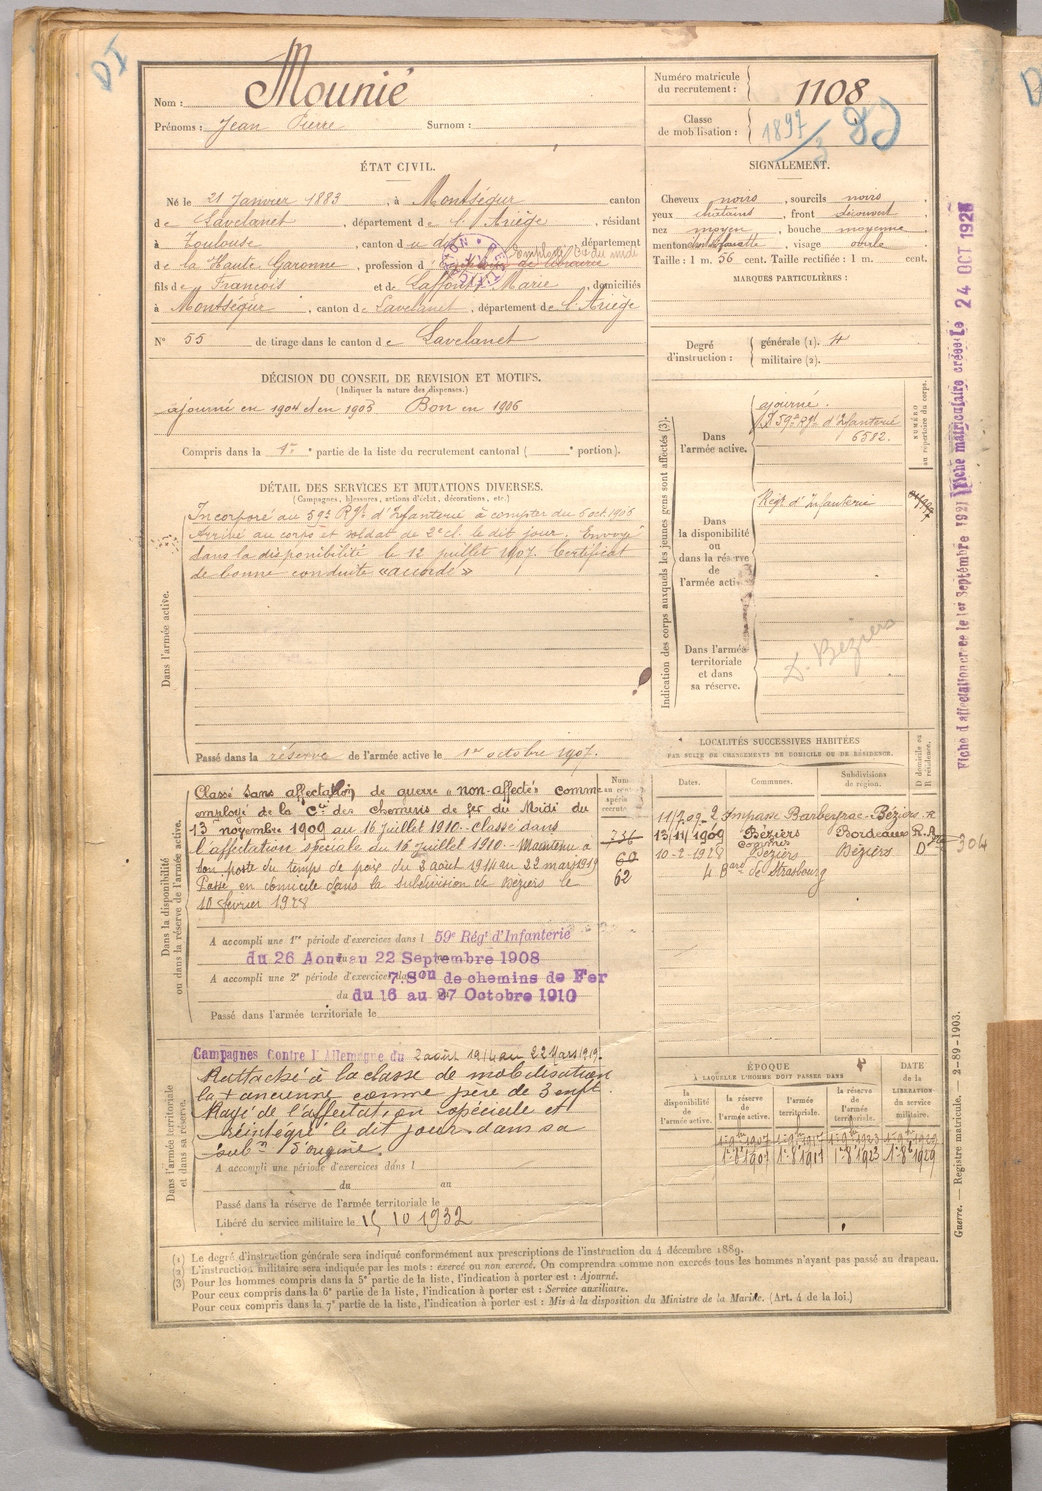 DI
Nom : Mounié
Prénoms : Jean Pierre Surnom :
Numéro matricule du recrutement : 1108
Classe de mobilisation : 1897/3
ÉTAT CIVIL.
Né le 21 Janvier 1883, à Montségur canton
de Lavelanet, département de l'Ariège, résidant
à Toulouse, canton du dit, département
de la Haute Garonne, profession d Employé Cie du midi
fils de François et de Laffont Marie, domiciliés
à Montségur, canton de Lavelanet, département de l'Ariège
N° 55 de tirage dans le canton de Lavelanet
SIGNALEMENT.
Cheveux noirs, sourcils noirs
yeux chatains, front découvert
nez moyen, bouche moyenne
menton à fossette, visage ovale
Taille : 1 m. 56 cent. Taille rectifiée : 1 m. cent.
MARQUES PARTICULIÈRES :
Degré d'instruction : générale (1). 4
militaire (2).
DÉCISION DU CONSEIL DE REVISION ET MOTIFS.
(Indiquer la nature des dispenses.)
ajourné en 1904 et en 1905 Bon en 1906
Compris dans la 1re partie de la liste du recrutement cantonal ( portion).
DÉTAIL DES SERVICES ET MUTATIONS DIVERSES.
(Campagnes, blessures, actions d'éclat, décorations, etc.)
Dans l'armée active.
Incorporé au 59e Rgt d'Infanterie à compter du 6 oct. 1906
Arrivé au corps et soldat de 2e cl. le dit jour. Envoyé
dans la disponibilité le 12 juillet 1907. Certificat
de bonne conduite «accordé»
Passé dans la réserve de l'armée active le 1er octobre 1907.
Indication des corps auxquels les jeunes gens sont affectés (3).
NUMÉRO au répertoire du corps.
Dans l'armée active.
ajourné.
59e Rgt d'Infanterie
6582.
Dans la disponibilité ou dans la réserve de l'armée active.
Régt d'Infanterie
Dans l'armée territoriale et dans sa réserve.
D. Béziers
Fiche d'affectation créée le 1er Septembre 1927
Fiche matriculaire créée le 24 OCT 1927
Dans la disponibilité ou dans la réserve de l'armée active.
Classé sans affectation de guerre "non-affecté" comme
employé de la Cie des chemins de fer du Midi du
13 novembre 1909 au 16 juillet 1910 - classé dans
l'affectation spéciale du 16 juillet 1910 - Maintenu à
son poste du temps de paix du 2 août 1914 au 22 mars 1919
Passé en domicile dans la subdivision de Béziers le
10 février 1928
60
62
A accompli une 1re période d'exercices dans l 59e Régt d'Infanterie
du 26 Aout au 22 Septembre 1908
A accompli une 2e période d'exercices dans 7.Son de chemins de Fer
du 16 au 27 Octobre 1910
Passé dans l'armée territoriale le
LOCALITÉS SUCCESSIVES HABITÉES
PAR SUITE DE CHANGEMENTS DE DOMICILE OU DE RÉSIDENCE.
Dates. Communes. Subdivisions de région. D domicile ou R résidence.
2 Impasse Barbeyrac - Béziers - R
13/11/1909 Béziers Bordeaux R.
10-2-1928 Béziers Béziers D 304
4 Bard de Strasbourg
Dans l'armée territoriale et dans sa réserve.
Campagnes Contre l'Allemagne du 2 août 1914 au 22 Mars 1919.
Rattaché à la classe de mobilisation
la + ancienne comme père de 3 enfts
Rayé de l'affectation spéciale et
réintégré le dit jour dans sa
subon d'origine.
A accompli une période d'exercices dans l
du au
Passé dans la réserve de l'armée territoriale le
Libéré du service militaire le 15 10 1932
ÉPOQUE
À LAQUELLE L'HOMME DOIT PASSER DANS
la disponibilité de l'armée active. la réserve de l'armée active. l'armée territoriale. la réserve de l'armée territoriale. DATE de la LIBÉRATION du service militaire.
1er 8bre 1907 1er 8bre 1917 1er 8bre 1923 1er 8bre 1929
(1) Le degré d'instruction générale sera indiqué conformément aux prescriptions de l'instruction du 4 décembre 1889.
(2) L'instruction militaire sera indiquée par les mots : exercé ou non exercé. On comprendra comme non exercés tous les hommes n'ayant pas passé au drapeau.
(3) Pour les hommes compris dans la 5e partie de la liste, l'indication à porter est : Ajourné.
Pour ceux compris dans la 6e partie de la liste, l'indication à porter est : Service auxiliaire.
Pour ceux compris dans la 7e partie de la liste, l'indication à porter est : Mis à la disposition du Ministre de la Marine. (Art. 4 de la loi.)
Guerre. — Registre matricule. — 2-89-1903.